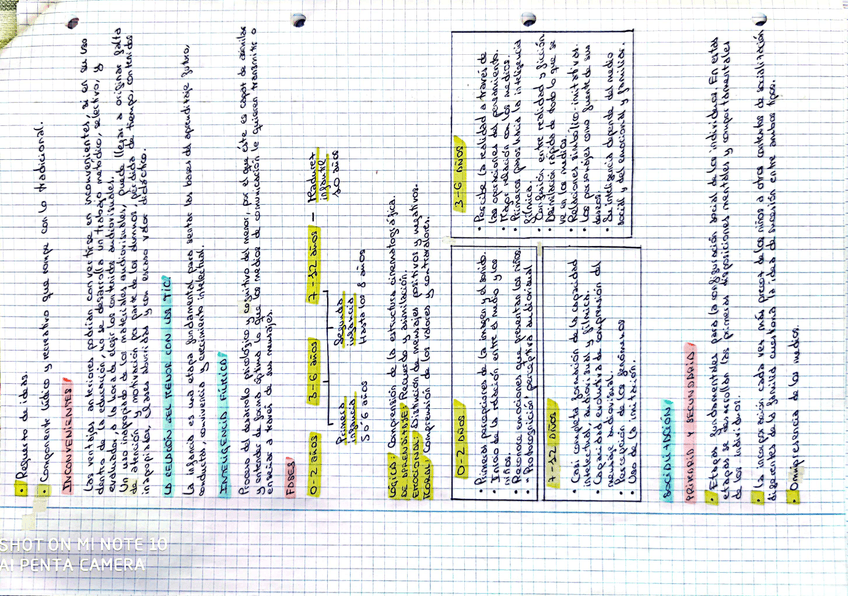 • Repunto de ideas.
• Componente lúdico y recreativo que rompe con lo tradicional.
INCONVENIENTES
Las ventajas anteriores podrían convertirse en inconvenientes, si en su uso
dentro de la educación, no se desarrolla un trabajo metódico, selectivo, y
evaluador, a la hora de elegir los contenidos audiovisuales.
Un uso inapropiado de los materiales audiovisuales, puede llegar a originar falta
de atención y motivación por parte de los alumnos, pérdida de tiempo, contenidos
inapropiados, clases aburridas y con escaso valor didáctico.
LA RELACIÓN DEL MENOR CON LAS TIC
La infancia es una etapa fundamental para sentar las bases del aprendizaje futuro,
conducta, convivencia y crecimiento intelectual.
INTELIGENCIA FÍLMICA
Proceso del desarrollo psicológico y cognitivo del menor, por el que éste es capaz de asimilar
y entender de forma óptima lo que los medios de comunicación le quieren transmitir o
enseñar a través de sus mensajes.
FASES
0-2 años 3-6 años 7-12 años — Madurez
infantil
10 años
Primera
infancia
5 o 6 años
Segunda
infancia
Hasta los 8 años
LÓGICA: Comprensión de la estructura cinematográfica.
DE APRENDIZAJE: Recuerdo y asimilación.
EMOCIONAL: Distinción de mensajes positivos y negativos.
MORAL: Comprensión de los valores y contravalores.
0-2 AÑOS
• Primeras percepciones de la imagen y el sonido.
• Inicio de la relación entre el medio y los
niños.
• Reconoce emociones que presentan los niños.
perceptiva audiovisual
3-6 AÑOS
• Percibe la realidad a través de
las operaciones del pensamiento.
• Mayor relación con los medios.
• Primeros pasos hacia la inteligencia
fílmica.
• Confusión entre realidad y ficción.
• Asimilación rápida de todo lo que se
ve en los medios.
• Relaciones simbólico-imitativas.
• Los personajes como fuente de sus
deseos.
• Su inteligencia depende del medio
social y del emocional y familiar.
7-12 AÑOS
• Casi completa formación de la capacidad
intelectual, audiovisual y fílmica.
• Capacidad evolutiva de comprensión del
mensaje audiovisual.
• Percepción de los géneros
• Uso de la imitación.
SOCIALIZACIÓN
PRIMARIA Y SECUNDARIA
• Etapas fundamentales para la configuración social de los individuos. En estas
etapas se desarrollan las primeras disposiciones mentales y comportamentales
de los individuos.
• La incorporación cada vez más precoz de los niños a otros contextos de socialización
diferentes de la familia cuestiona la idea de sucesión entre ambos tipos.
• Omnipresencia de los medios.
SHOT ON MI NOTE 10
AI PENTA CAMERA